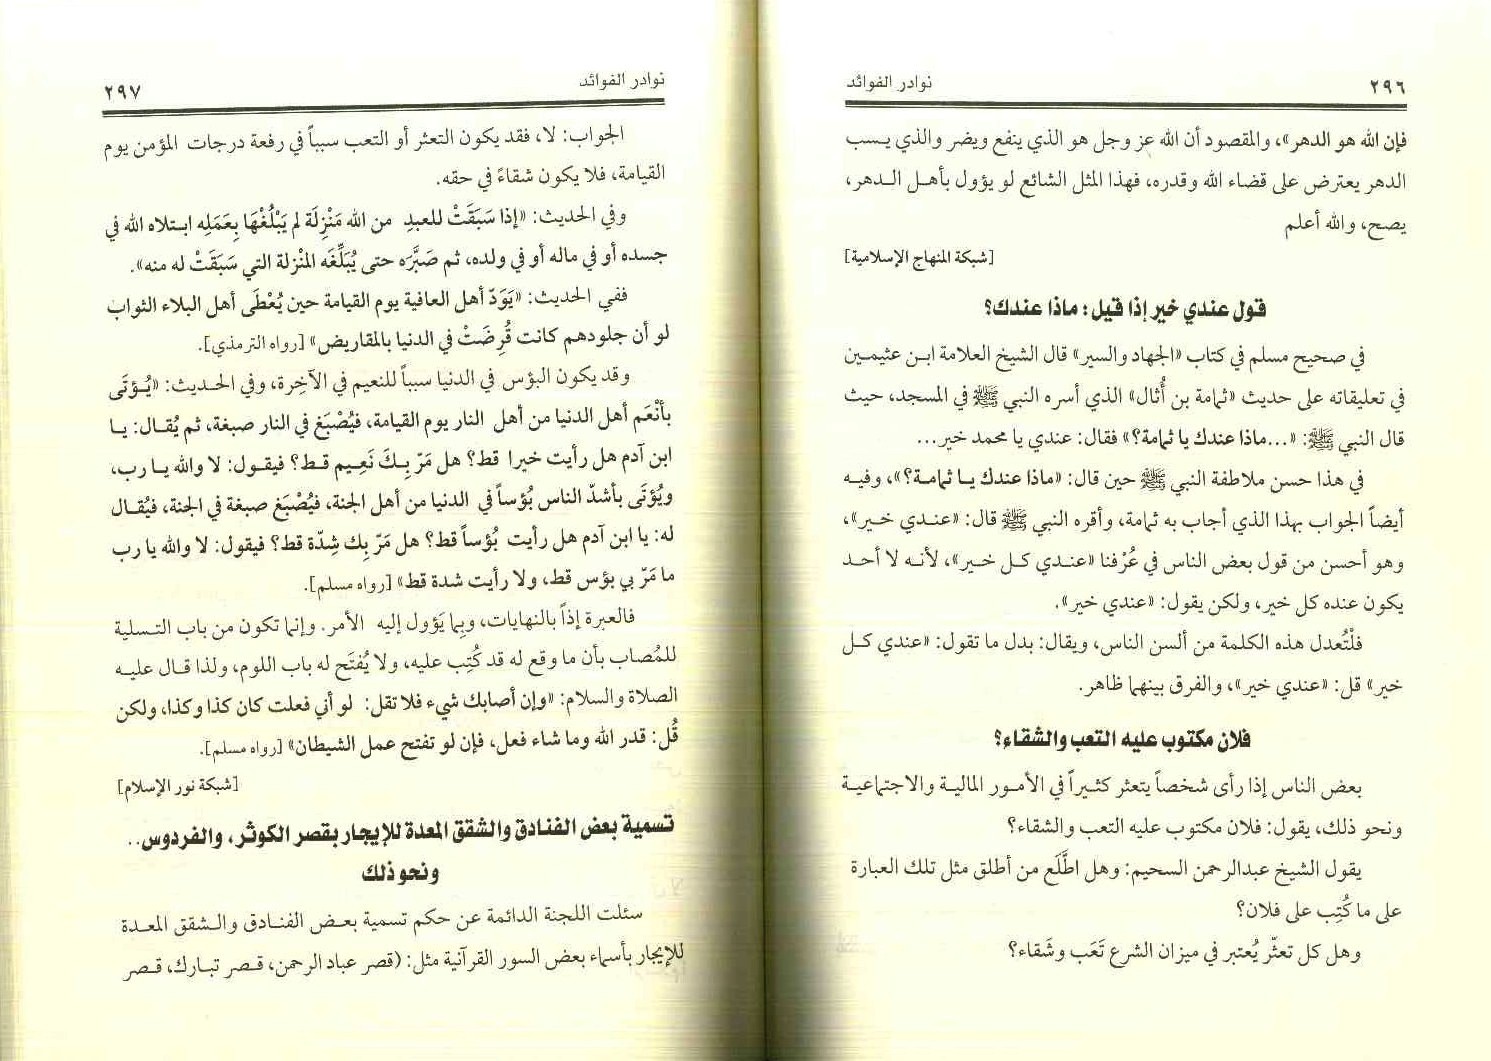 ٢٩٦
نوادر الفوائد
فإن الله هو الدهر»، والمقصود أن الله عز وجل هو الذي ينفع ويضر والذي يسب
الدهر يعترض على قضاء الله وقدره، فهذا المثل الشائع لو يؤول بأهل الدهر،
يصح، والله أعلم
[شبكة المنهاج الإسلامية]
قول عندي خير إذا قيل: ماذا عندك؟
في صحيح مسلم في كتاب «الجهاد والسير» قال الشيخ العلامة ابن عثيمين
في تعليقاته على حديث «ثمامة بن أُثال» الذي أسره النبي ﷺ في المسجد، حيث
قال النبي ﷺ: «...ماذا عندك يا ثمامة؟» فقال: عندي يا محمد خير...
في هذا حسن ملاطفة النبي ﷺ حين قال: «ماذا عندك يا ثمامة؟»، وفيه
أيضاً الجواب بهذا الذي أجاب به ثمامة، وأقره النبي ﷺ قال: «عندي خير»،
وهو أحسن من قول بعض الناس في عُرْفنا «عندي كل خير»، لأنه لا أحد
يكون عنده كل خير، ولكن يقول: «عندي خير».
فلْتُعدل هذه الكلمة من ألسن الناس، ويقال: بدل ما تقول: «عندي كل
خير» قل: «عندي خير»، والفرق بينهما ظاهر.
فلان مكتوب عليه التعب والشقاء؟
بعض الناس إذا رأى شخصاً يتعثر كثيراً في الأمور المالية والاجتماعية
ونحو ذلك، يقول: فلان مكتوب عليه التعب والشقاء؟
يقول الشيخ عبدالرحمن السحيم: وهل اطَّلَع من أطلق مثل تلك العبارة
على ما كُتِب على فلان؟
وهل كل تعثّر يُعتبر في ميزان الشرع تَعَب وشَقاء؟
نوادر الفوائد
٢٩٧
الجواب: لا، فقد يكون التعثر أو التعب سبباً في رفعة درجات المؤمن يوم
القيامة، فلا يكون شقاءً في حقه.
وفي الحديث: «إذا سَبَقَتْ للعبدِ من الله مَنْزِلَة لم يَبْلُغْهَا بِعَمَلِه ابتلاه الله في
جسده أو في ماله أو في ولده، ثم صَبَّرَه حتى يُبَلِّغَه المْنزلة التي سَبَقَتْ له منه».
ففي الحديث: «يَوَدّ أهل العافية يوم القيامة حين يُعْطَى أهل البلاء الثواب
لو أن جلودهم كانت قُرِضَتْ في الدنيا بالمقاريض» [رواه الترمذي].
وقد يكون البؤس في الدنيا سبباً للنعيم في الآخرة، وفي الحديث: «يُؤتَى
بأنْعَم أهل الدنيا من أهل النار يوم القيامة، فيُصْبَغ في النار صبغة، ثم يُقال: يا
ابن آدم هل رأيت خيرا قط؟ هل مَرّ بِكَ نَعِيم قط؟ فيقول: لا والله يا رب،
ويُؤتَى بأشدّ الناس بُؤساً في الدنيا من أهل الجنة، فيُصْبَغ صبغة في الجنة، فيُقال
له: يا ابن آدم هل رأيت بُؤساً قط؟ هل مَرّ بِك شِدّة قط؟ فيقول: لا والله يا رب
ما مَرّ بي بؤس قط، ولا رأيت شدة قط» [رواه مسلم].
فالعبرة إذاً بالنهايات، وبِما يَؤول إليه الأمر. وإنما تكون من باب التسلية
للمُصاب بأن ما وقع له قد كُتِب عليه، ولا يُفتَح له باب اللوم، ولذا قال عليه
الصلاة والسلام: «وإن أصابك شيء فلا تقل: لو أني فعلت كان كذا وكذا، ولكن
قُل: قدر الله وما شاء فعل، فإن لو تفتح عمل الشيطان» [رواه مسلم].
[شبكة نور الإسلام]
تسمية بعض الفنادق والشقق المعدة للإيجار بقصر الكوثر، والفردوس..
ونحو ذلك
سئلت اللجنة الدائمة عن حكم تسمية بعض الفنادق والشقق المعدة
للإيجار بأسماء بعض السور القرآنية مثل: (قصر عباد الرحمن، قصر تبارك، قصر